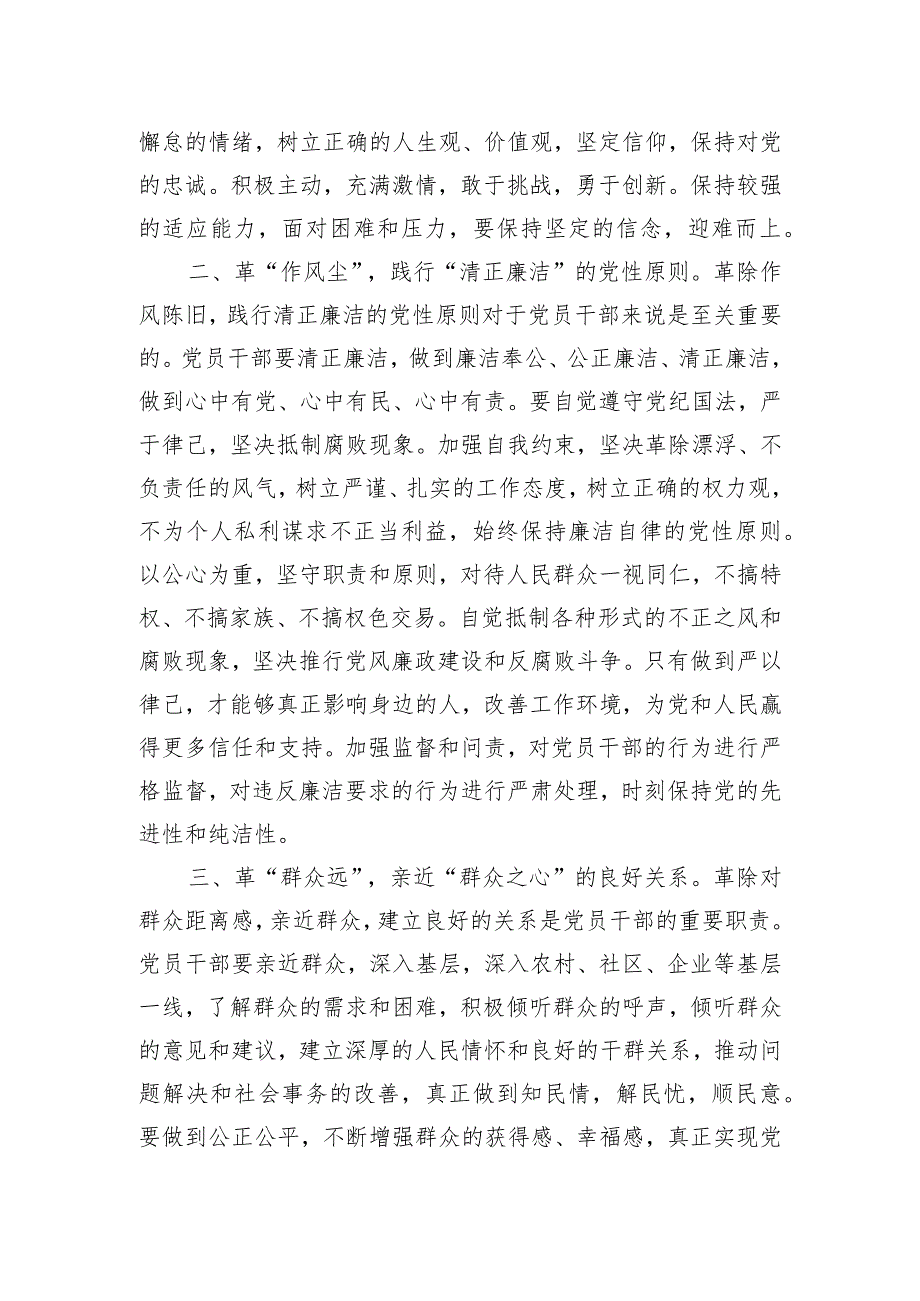 懈怠的情绪，树立正确的人生观、价值观，坚定信仰，保持对党
的忠诚。积极主动，充满激情，敢于挑战，勇于创新。保持较强
的适应能力，面对困难和压力，要保持坚定的信念，迎难而上。
二、革“作风尘”，践行“清正廉洁”的党性原则。革除作
风陈旧，践行清正廉洁的党性原则对于党员干部来说是至关重要
的。党员干部要清正廉洁，做到廉洁奉公、公正廉洁、清正廉洁，
做到心中有党、心中有民、心中有责。要自觉遵守党纪国法，严
于律己，坚决抵制腐败现象。加强自我约束，坚决革除漂浮、不
负责任的风气，树立严谨、扎实的工作态度，树立正确的权力观，
不为个人私利谋求不正当利益，始终保持廉洁自律的党性原则。
以公心为重，坚守职责和原则，对待人民群众一视同仁，不搞特
权、不搞家族、不搞权色交易。自觉抵制各种形式的不正之风和
腐败现象，坚决推行党风廉政建设和反腐败斗争。只有做到严以
律己，才能够真正影响身边的人，改善工作环境，为党和人民赢
得更多信任和支持。加强监督和问责，对党员干部的行为进行严
格监督，对违反廉洁要求的行为进行严肃处理，时刻保持党的先
进性和纯洁性。
三、革“群众远”，亲近“群众之心”的良好关系。革除对
群众距离感，亲近群众，建立良好的关系是党员干部的重要职责。
党员干部要亲近群众，深入基层，深入农村、社区、企业等基层
一线，了解群众的需求和困难，积极倾听群众的呼声，倾听群众
的意见和建议，建立深厚的人民情怀和良好的干群关系，推动问
题解决和社会事务的改善，真正做到知民情，解民忧，顺民意。
要做到公正公平，不断增强群众的获得感、幸福感，真正实现党